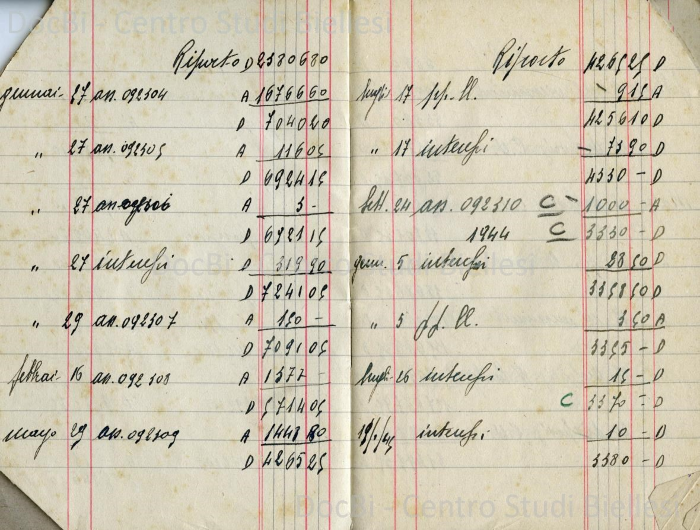 DocBi - Centro Studi Biellesi
Riporto D 2380680
gennai- 27 as. 092304 A 1676660
D 704020
" 27 as. 092305 A 11605
D 692415
" 27 as. 092306 A 3 -
D 692115
" 27 interessi D 31990
D 724105
" 29 as. 092307 A 150 -
D 709105
febbrai- 16 as. 092308 A 1377 -
D 571405
marzo 29 as. 092309 A 144880
D 426525
Riporto 426525 D
lugli- 17 pp. ll. - 915 A
425610 D
" 17 interessi - 7390 D
4330 - D
Sett. 24 as. 092310 C - 1000 - A
1944 C 3330 - D
genn. 5 interessi 2850 D
335850 D
" 5 pp. ll. 350 A
3355 - D
lugli- 26 interessi 15 - D
C 3370 - D
interessi 10 - D
3380 - D
DocBi - Centro Studi Biellesi
DocBi - Centro Studi Biellesi